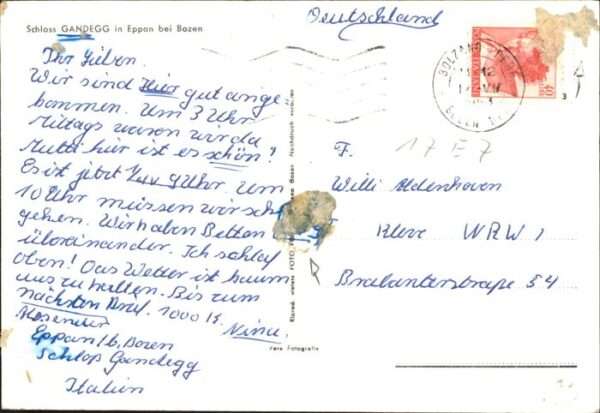 Schloss GANDEGG in Eppan bei Bozen
Deutschland
Ihr Lieben.
Wir sind hier gut ange
kommen. Um 3 Uhr
Mittags waren wir da
Mutti hier ist es schön!
Es ist jetzt 9 Uhr. Um
10 Uhr müssen wir
gehen. Wir haben Betten
übereinander. Ich schlaf
oben! Das Wetter ist kaum
auszuhalten. Bis zum
nächsten Brief. 1000 K.
Eppan b. Bozen
Schloß Gandegg
Italien
Vera Fotografia
BOLZANO
BOZEN
F.
17 E 7
Willi
Kleve NRW 1
Brabanterstraße 54
3